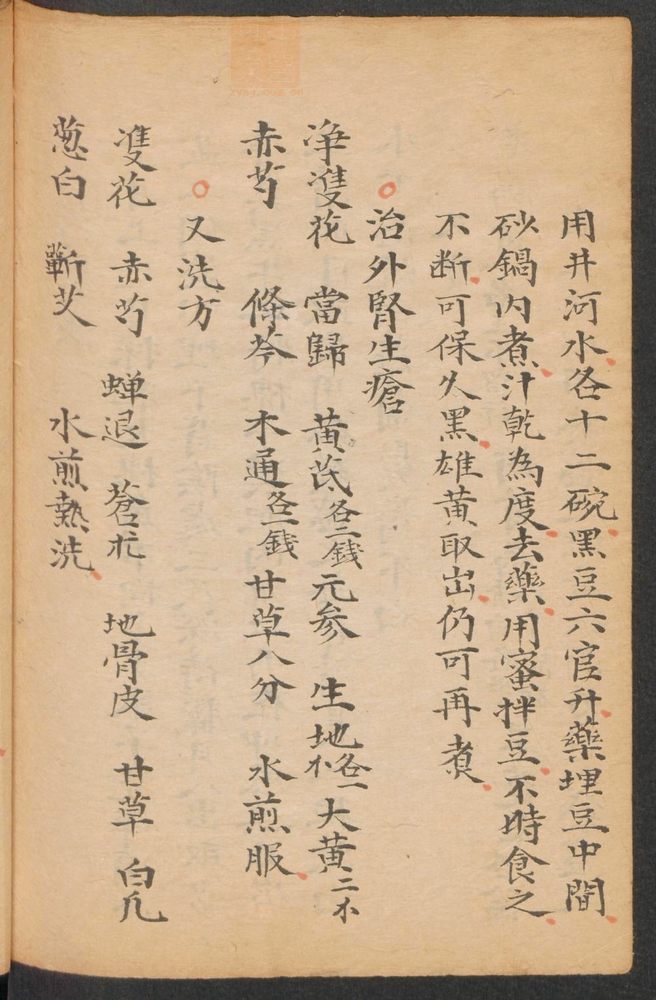 用井河水各十二碗黑豆六官升藥埋豆中間
砂鍋内煮汁乾為度去藥用蜜拌豆不時食之
不断可保久黑雄黄取出仍可再煮
治外腎生瘡
淨雙花 當歸 黄芪各二錢 元参 生地各一 大黄二
赤芍 條芩 木通各一錢 甘草八分 水煎服
又洗方
雙花 赤芍 蝉退 蒼朮 地骨皮 甘草 白凡
葱白 蘄艾 水煎熱洗